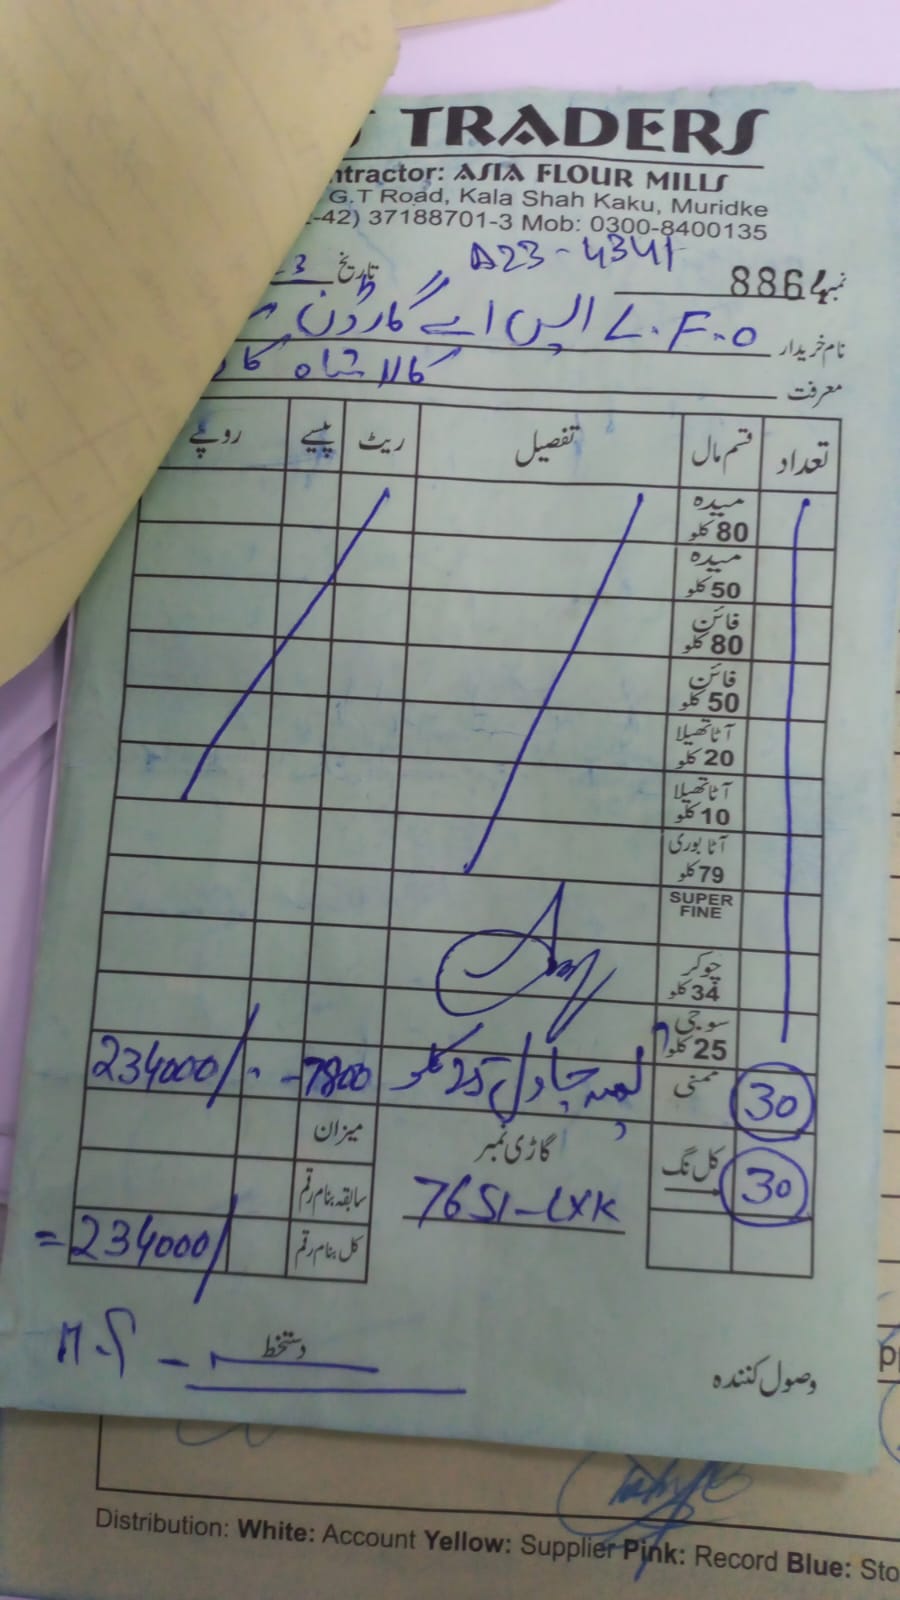 TRADERS
ntractor: ASIA FLOUR MILLS
G.T Road, Kala Shah Kaku, Muridke
-42) 37188701-3 Mob: 0300-8400135
A23-4341
تاریخ
نمبر 8864
نام خریدار L.F.O ایس اے گارڈن
معرفت کالا شاہ کا
تعداد قسم مال تفصیل ریٹ پیسے روپے
میدہ
80 کلو
میدہ
50 کلو
فائن
80 کلو
فائن
50 کلو
آٹا تھیلا
20 کلو
آٹا تھیلا
10 کلو
آٹا بوری
79 کلو
SUPER
FINE
چوکر
34 کلو
سوجی
25 کلو
30 ممنی چاول 25 کلو 7800 234000/
کل نگ 30
گاڑی نمبر
7651-LXK
میزان
سابقہ بنام رقم
کل بنام رقم = 234000/
دستخط
وصول کنندہ
Distribution: White: Account Yellow: Supplier Pink: Record Blue: Sto